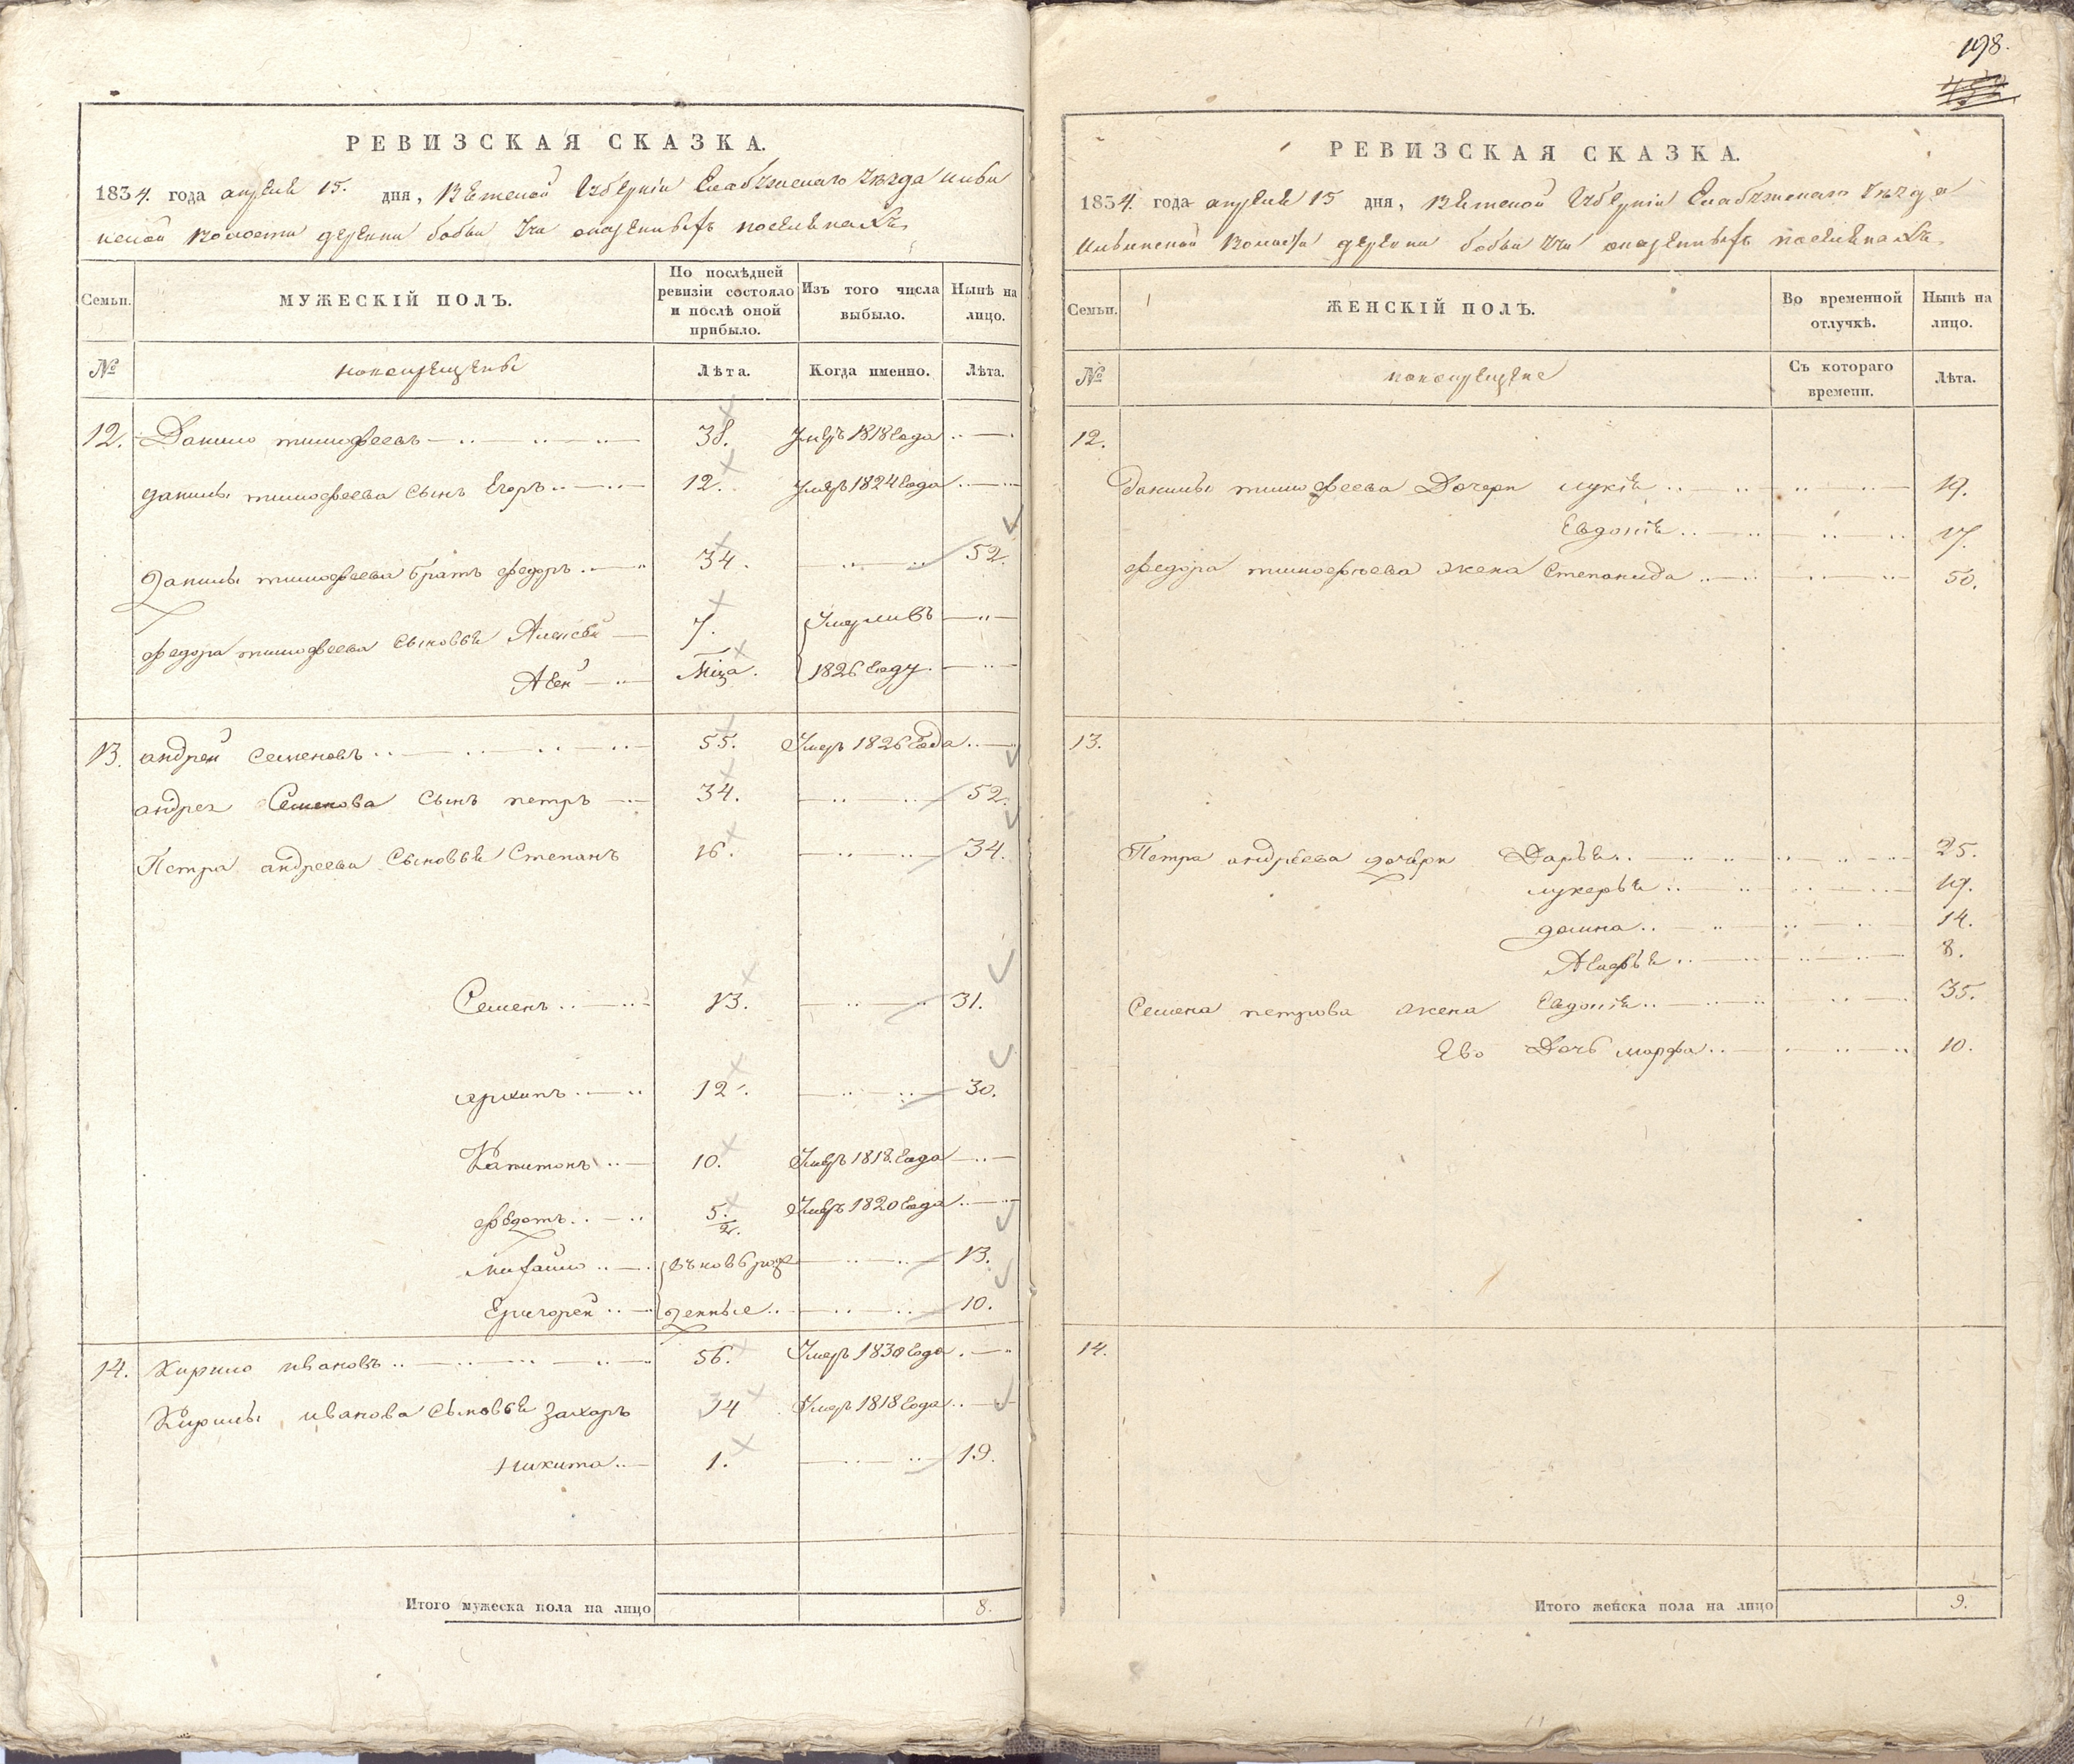 РЕВИЗСКАЯ СКАЗКА.
1834. года апреля 15. дня, Вятской Губернiи Елабужскаго Уезда Ильи
нской волости деревни бобьи Учи окрещеныхъ вотяковъ
Семьи. МУЖЕСКIЙ ПОЛЪ. По послѣдней ревизiи состояло и послѣ оной прибыло. Изъ того числа выбыло. Нынѣ на лицо.
№ новокрещены Лѣта. Когда именно. Лѣта.
12. Данило тимофеевъ 38. умеръ 1818 года
данилы тимофеева сынъ Егоръ 12. умеръ 1824 года
данилы тимофеева братъ федоръ 34. 52.
федора тимофеева сыновья Алексей 7. Умерли въ
1826 году.
13. андрей семеновъ 55. Умеръ 1826 года
андрея Семенова сынъ петръ 34. 52.
Петра андреева сыновья Степанъ 16. 34.
Семенъ 13. 31.
архипъ 12. 30.
Капитонъ 10. Умеръ 1818. года
федотъ 5. Умеръ 1820 года
Михайло вновь рож 13.
Григорей денные 10.
14. Кирило ивановъ 56. Умеръ 1830 года
Кирилы иванова сыновья захаръ 34 Умеръ 1818 года
Никита 1. 19.
Итого мужеска пола на лицо 8.
198.
РЕВИЗСКАЯ СКАЗКА.
1834. года апреля 15 дня, Вятской Губернiи Елабужскаго Уезда
Ильинской волости деревни бобьи Учи окрещеныхъ вотяковъ
Семьи. ЖЕНСКIЙ ПОЛЪ. Во временной отлучкѣ. Нынѣ на лицо.
№ новокрещены Съ котораго времени. Лѣта.
12.
данилы тимофеева Дочери лукiя 19.
Евдокiя 17.
федора тимофеева жена Степанида 50.
13.
Петра андреева дочери Дарья 25.
лукерья 19.
домна 14.
8.
Семена петрова жена Евдокiя 35.
Ево Дочь марфа 10.
14.
Итого женска пола на лицо 9.